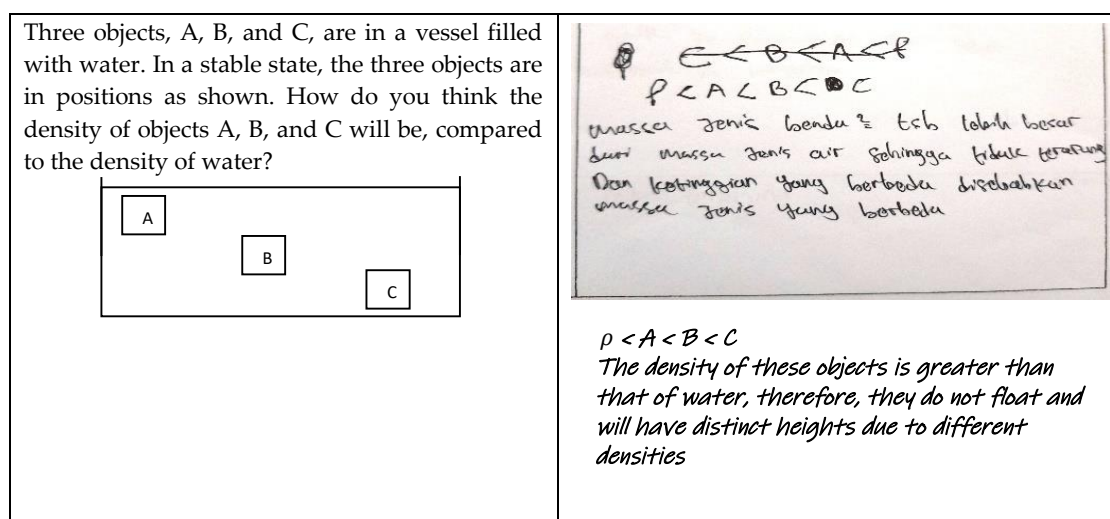 Three objects, A, B, and C, are in a vessel filled
with water. In a stable state, the three objects are
in positions as shown. How do you think the
density of objects A, B, and C will be, compared
to the density of water?
A
B
C
C < B < A < ρ
ρ < A < B < C
massa jenis benda² tsb lebih besar
dari massa jenis air sehingga tidak terapung
Dan ketinggian yang berbeda disebabkan
massa jenis yang berbeda
ρ < A < B < C
The density of these objects is greater than
that of water, therefore, they do not float and
will have distinct heights due to different
densities